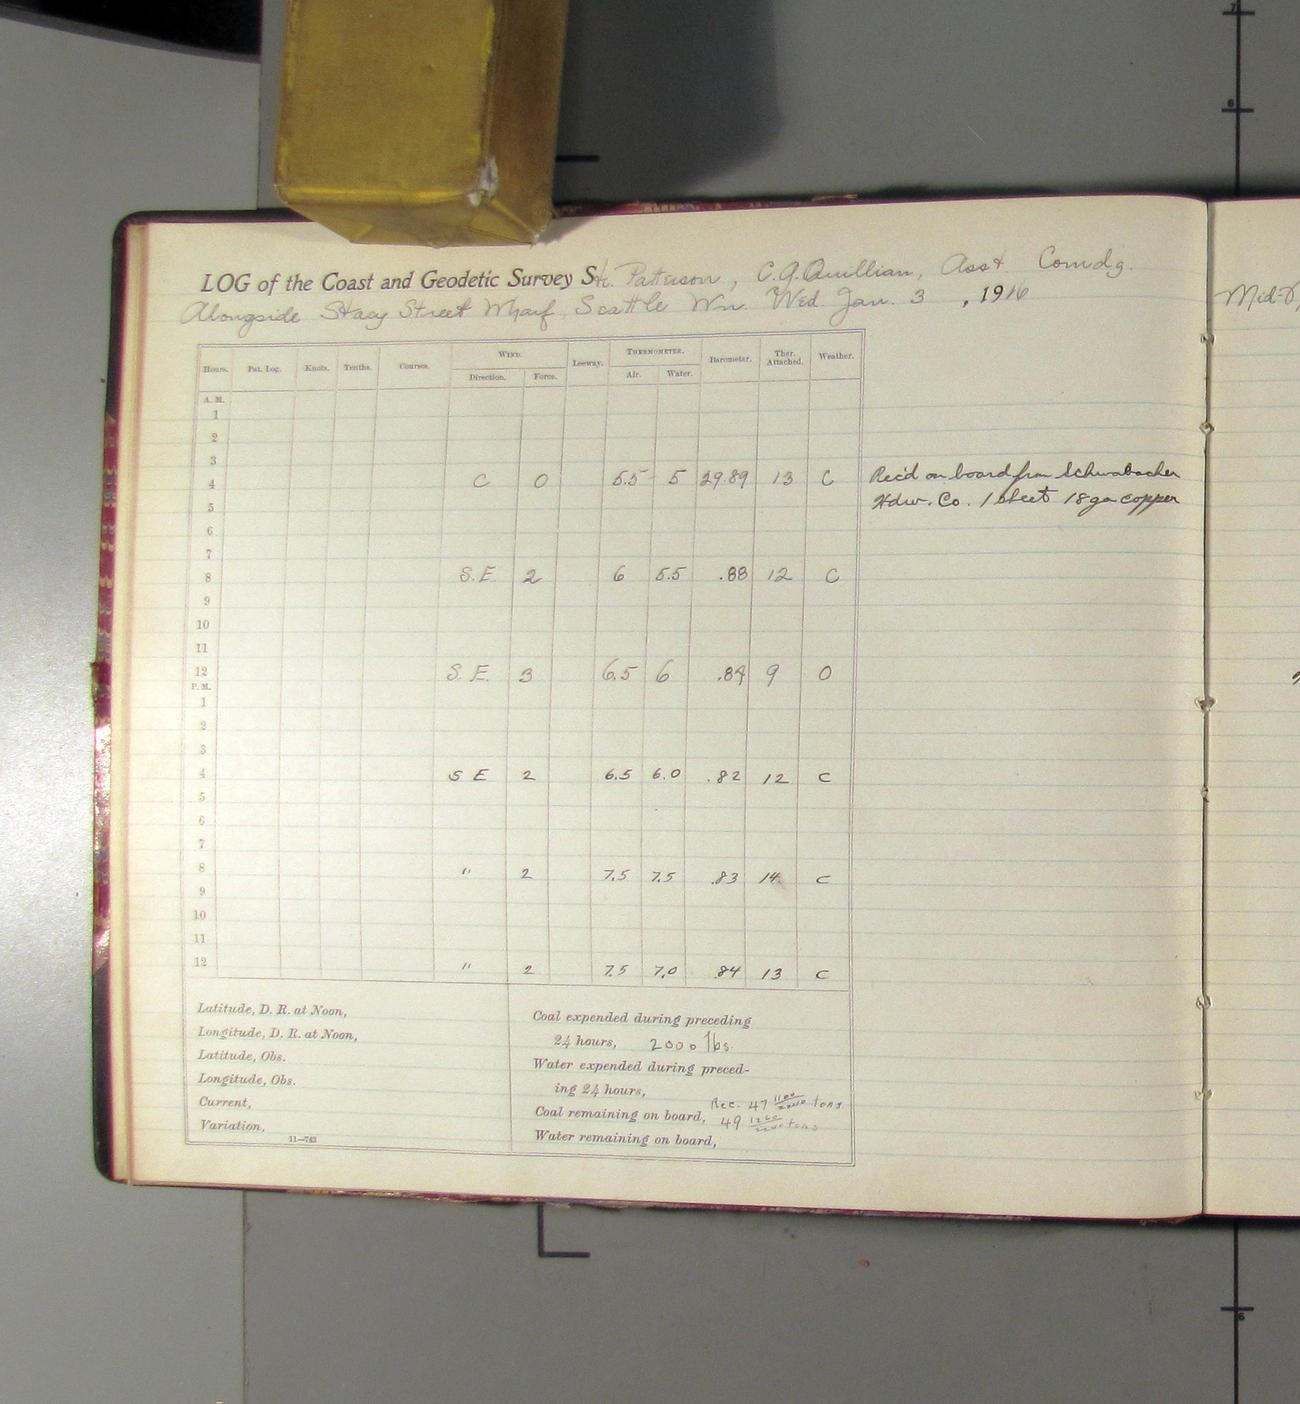 LOG of the Coast and Geodetic Survey Str. Patterson, C.G. Quillian, Asst. Comdg.
Alongside Stacy Street Wharf, Seattle Wn. Wed. Jan. 3, 1916
Hours. Pat. Log. Knots. Tenths. Courses. WIND. Leeway. THERMOMETER. Barometer. Ther. Attached. Weather.
Direction. Force. Air. Water.
A. M.
1
2
3
4 C 0 5.5 5 29.89 13 C Rec'd on board from Schwabacher
5 Hdw. Co. 1 sheet 18 ga copper
6
7
8 S.E. 2 6 5.5 .88 12 C
9
10
11
12 S.E. 3 6.5 6 .84 9 O
P. M.
1
2
3
4 S E 2 6.5 6.0 .82 12 C
5
6
7
8 " 2 7.5 7.5 .83 14 C
9
10
11
12 " 2 7.5 7.0 .84 13 C
Latitude, D. R. at Noon,
Longitude, D. R. at Noon,
Latitude, Obs.
Longitude, Obs.
Current,
Variation,
11—743
Coal expended during preceding
24 hours, 2000 lbs.
Water expended during preced-
ing 24 hours,
Rec. 47 1100/2240 tons
Coal remaining on board, 49 1260/2240 tons
Water remaining on board,